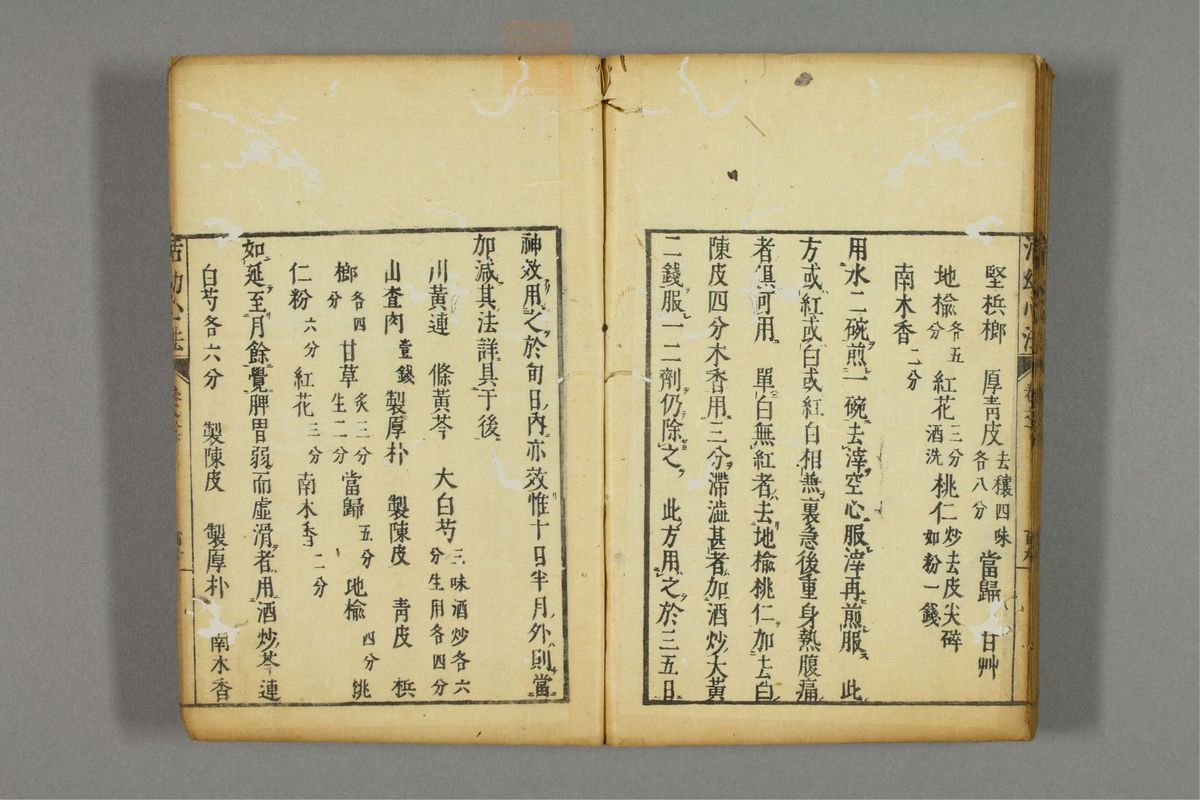 堅梹榔 厚青皮去穰四味各八分 當歸 甘艸
地榆各五分 紅花三分酒洗 桃仁炒去皮尖碎如粉一錢
南木香二分
用水二碗煎一碗去滓空心服滓再煎服 此
方或紅或白或紅白相兼裏急後重身熱腹痛
者俱可用 單白無紅者去地榆桃仁加去白
陳皮四分木香用三分滯澁甚者加酒炒大黃
二錢服一二劑仍除之 此方用之於三五日
神效用之於旬日內亦效惟十日半月外則當
加減其法詳具于後
川黃連 條黃芩 大白芍三味酒炒各六分生用各四分
山查肉壹錢 製厚朴 製陳皮 青皮 梹
榔各四分 甘草炙三分生二分 當歸五分 地榆四分 桃
仁粉六分 紅花三分 南木香二分
如延至月餘覺脾胃弱而虛滑者用酒炒芩連
白芍各六分 製陳皮 製厚朴 南木香
活幼心法